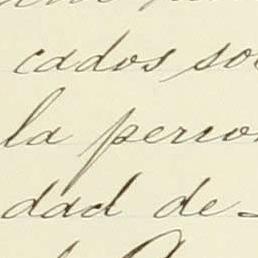 cados so
la perco
dad de-